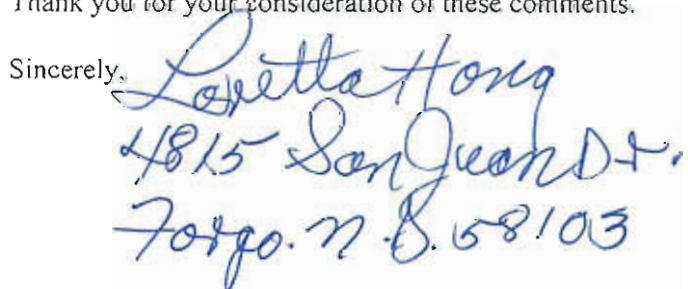 Thank you for your consideration of these comments.
Sincerely,
Loretta Hong
4815 San Juan Dr.
Fargo. N.D. 58103